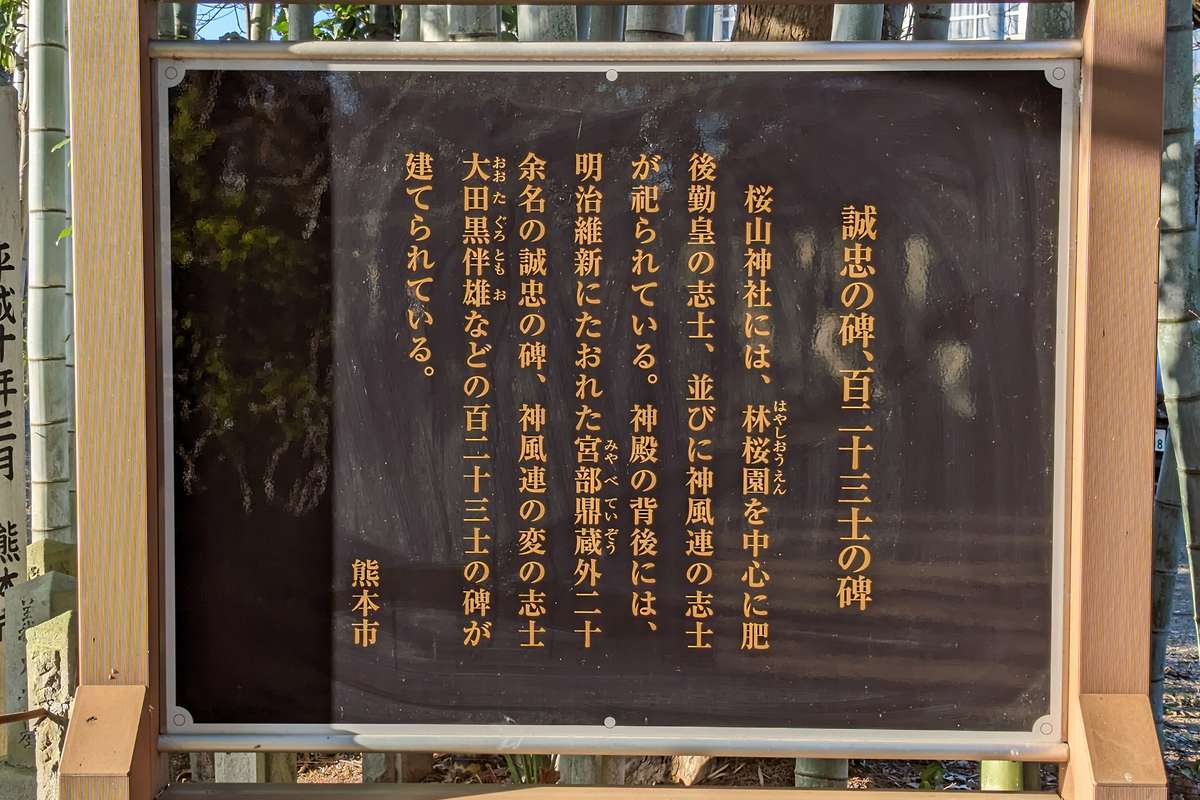 誠忠の碑、百二十三士の碑
桜山神社には、林桜園を中心に肥
はやしおうえん
後勤皇の志士、並びに神風連の志士
が祀られている。神殿の背後には、
明治維新にたおれた宮部鼎蔵外二十
みやべていぞう
余名の誠忠の碑、神風連の変の志士
大田黒伴雄などの百二十三士の碑が
おおたぐろともお
建てられている。
熊本市
平成十年三月 熊本市